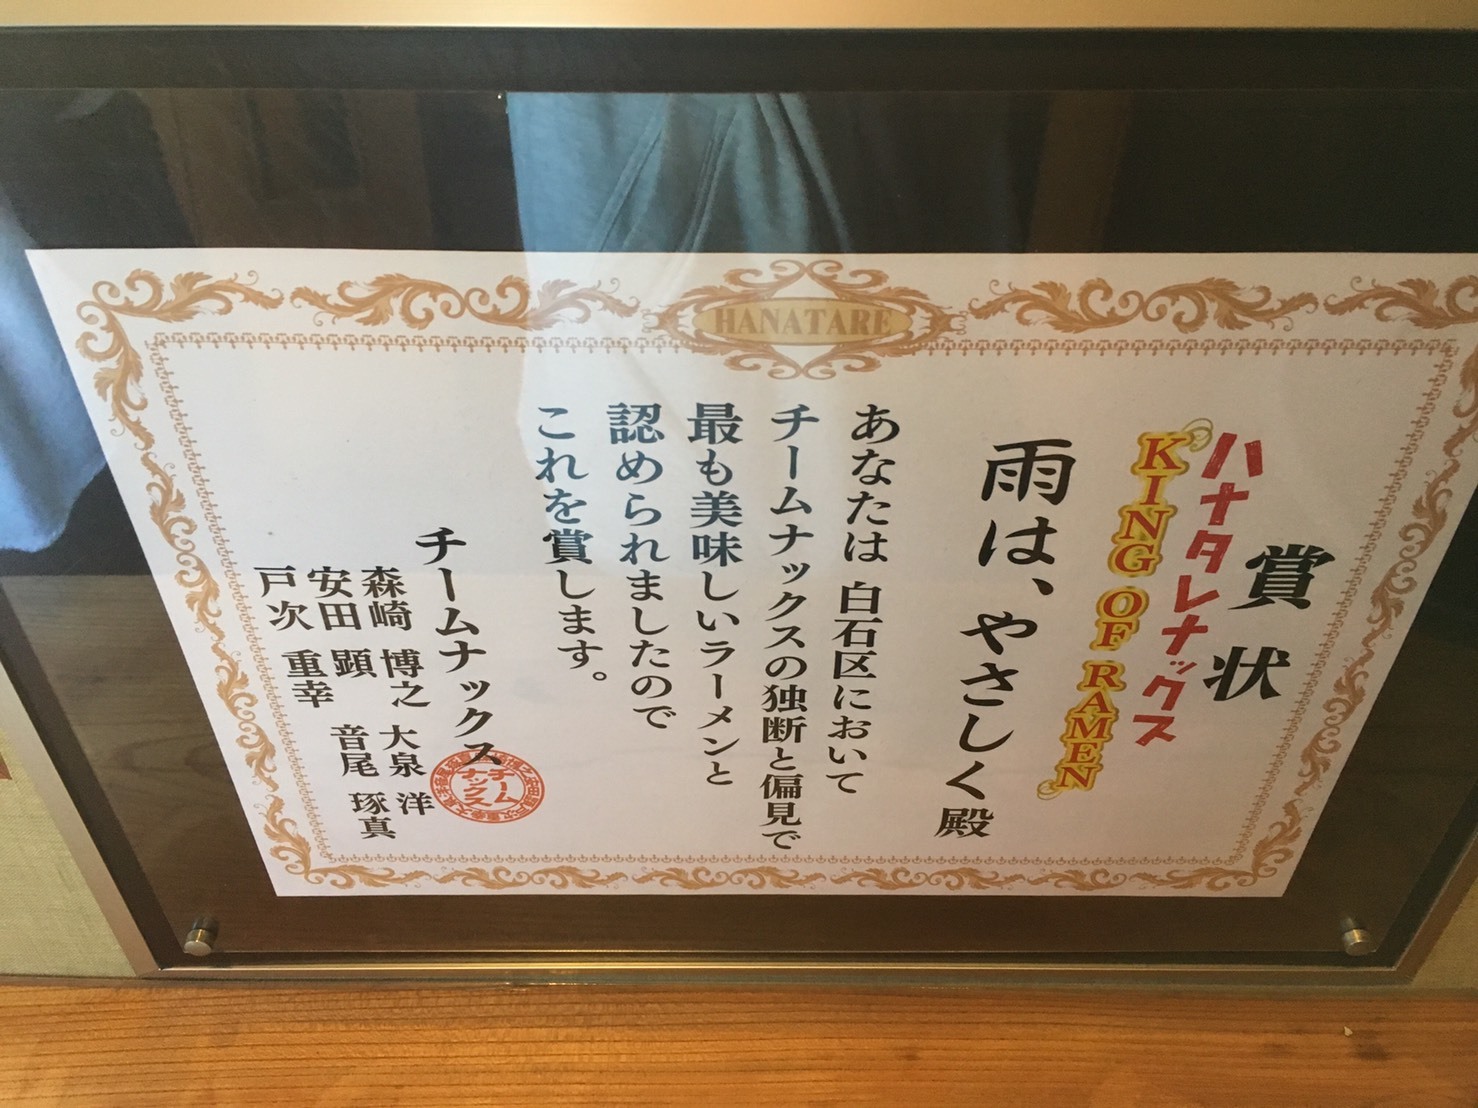 HANATARE
賞状
ハナタレナックス
KING OF RAMEN
雨は、やさしく殿
あなたは 白石区において
チームナックスの独断と偏見で
最も美味しいラーメンと
認められましたので
これを賞します。
チームナックス
森崎 博之 大泉 洋
安田 顕 音尾 琢真
戸次 重幸
チーム
ナックス